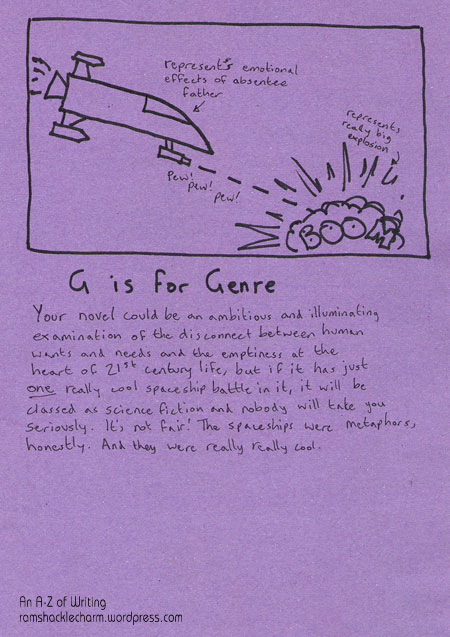 represents emotional
effects of absentee
father
represents
really big
explosion
Pew!
Pew!
Pew!
BOOM!
G is for Genre
Your novel could be an ambitious and illuminating
examination of the disconnect between human
wants and needs and the emptiness at the
heart of 21st century life, but if it has just
one really cool spaceship battle in it, it will be
classed as science fiction and nobody will take you
seriously. It's not fair! The spaceships were metaphors,
honestly. And they were really really cool.
An A-Z of Writing
ramshacklecharm.wordpress.com